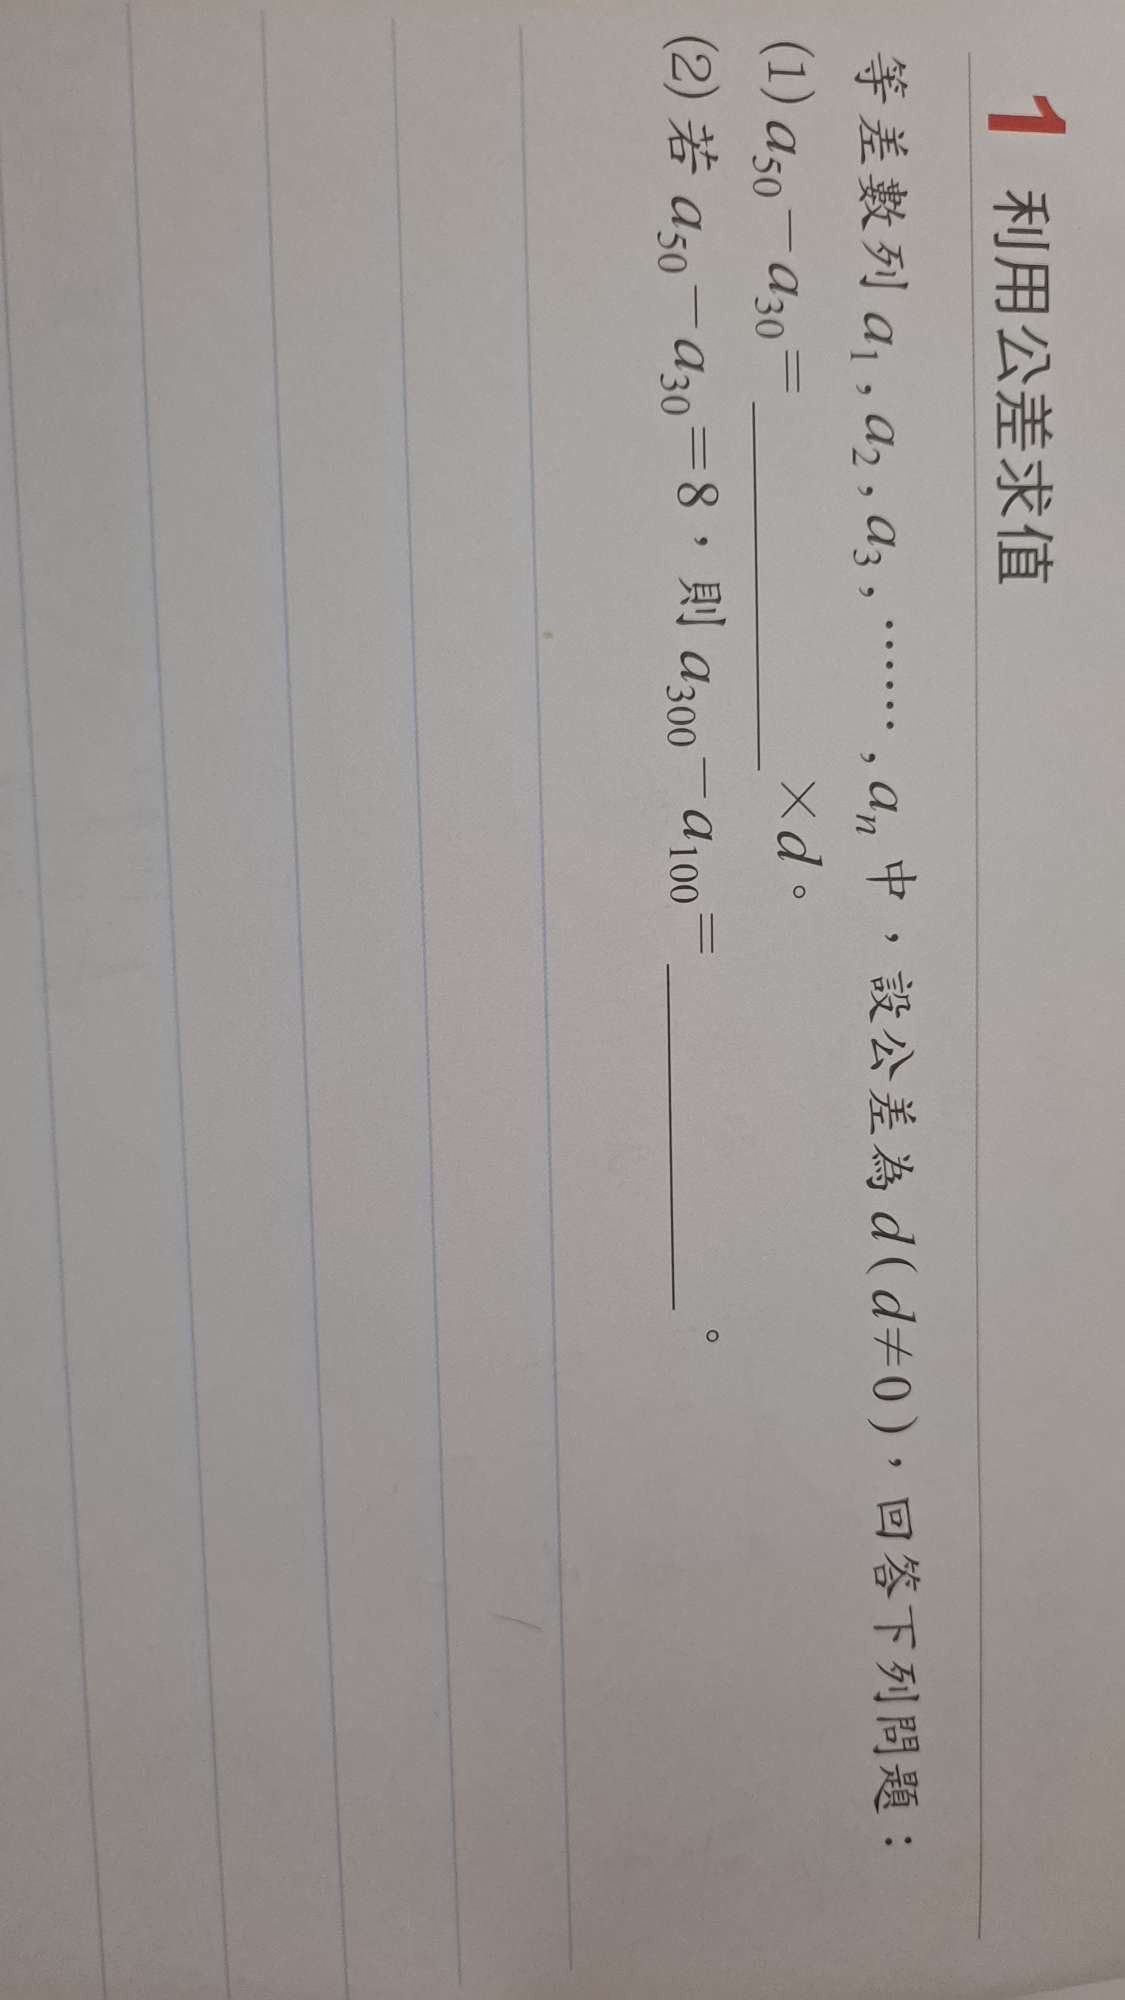 1 利用公差求值
等差數列 a₁, a₂, a₃, ……, aₙ 中，設公差為 d ( d≠0 )，回答下列問題：
(1) a₅₀－a₃₀＝＿＿＿＿＿＿×d。
(2) 若 a₅₀－a₃₀＝8，則 a₃₀₀－a₁₀₀＝＿＿＿＿＿＿。